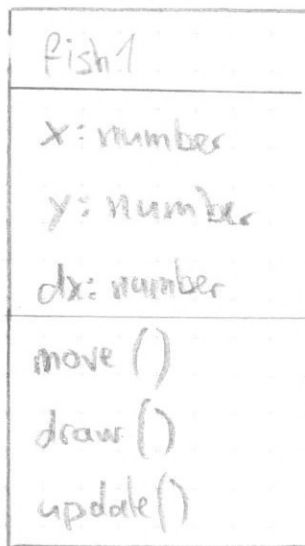 fish1
x: number
y: number
dx: number
move ()
draw ()
update()